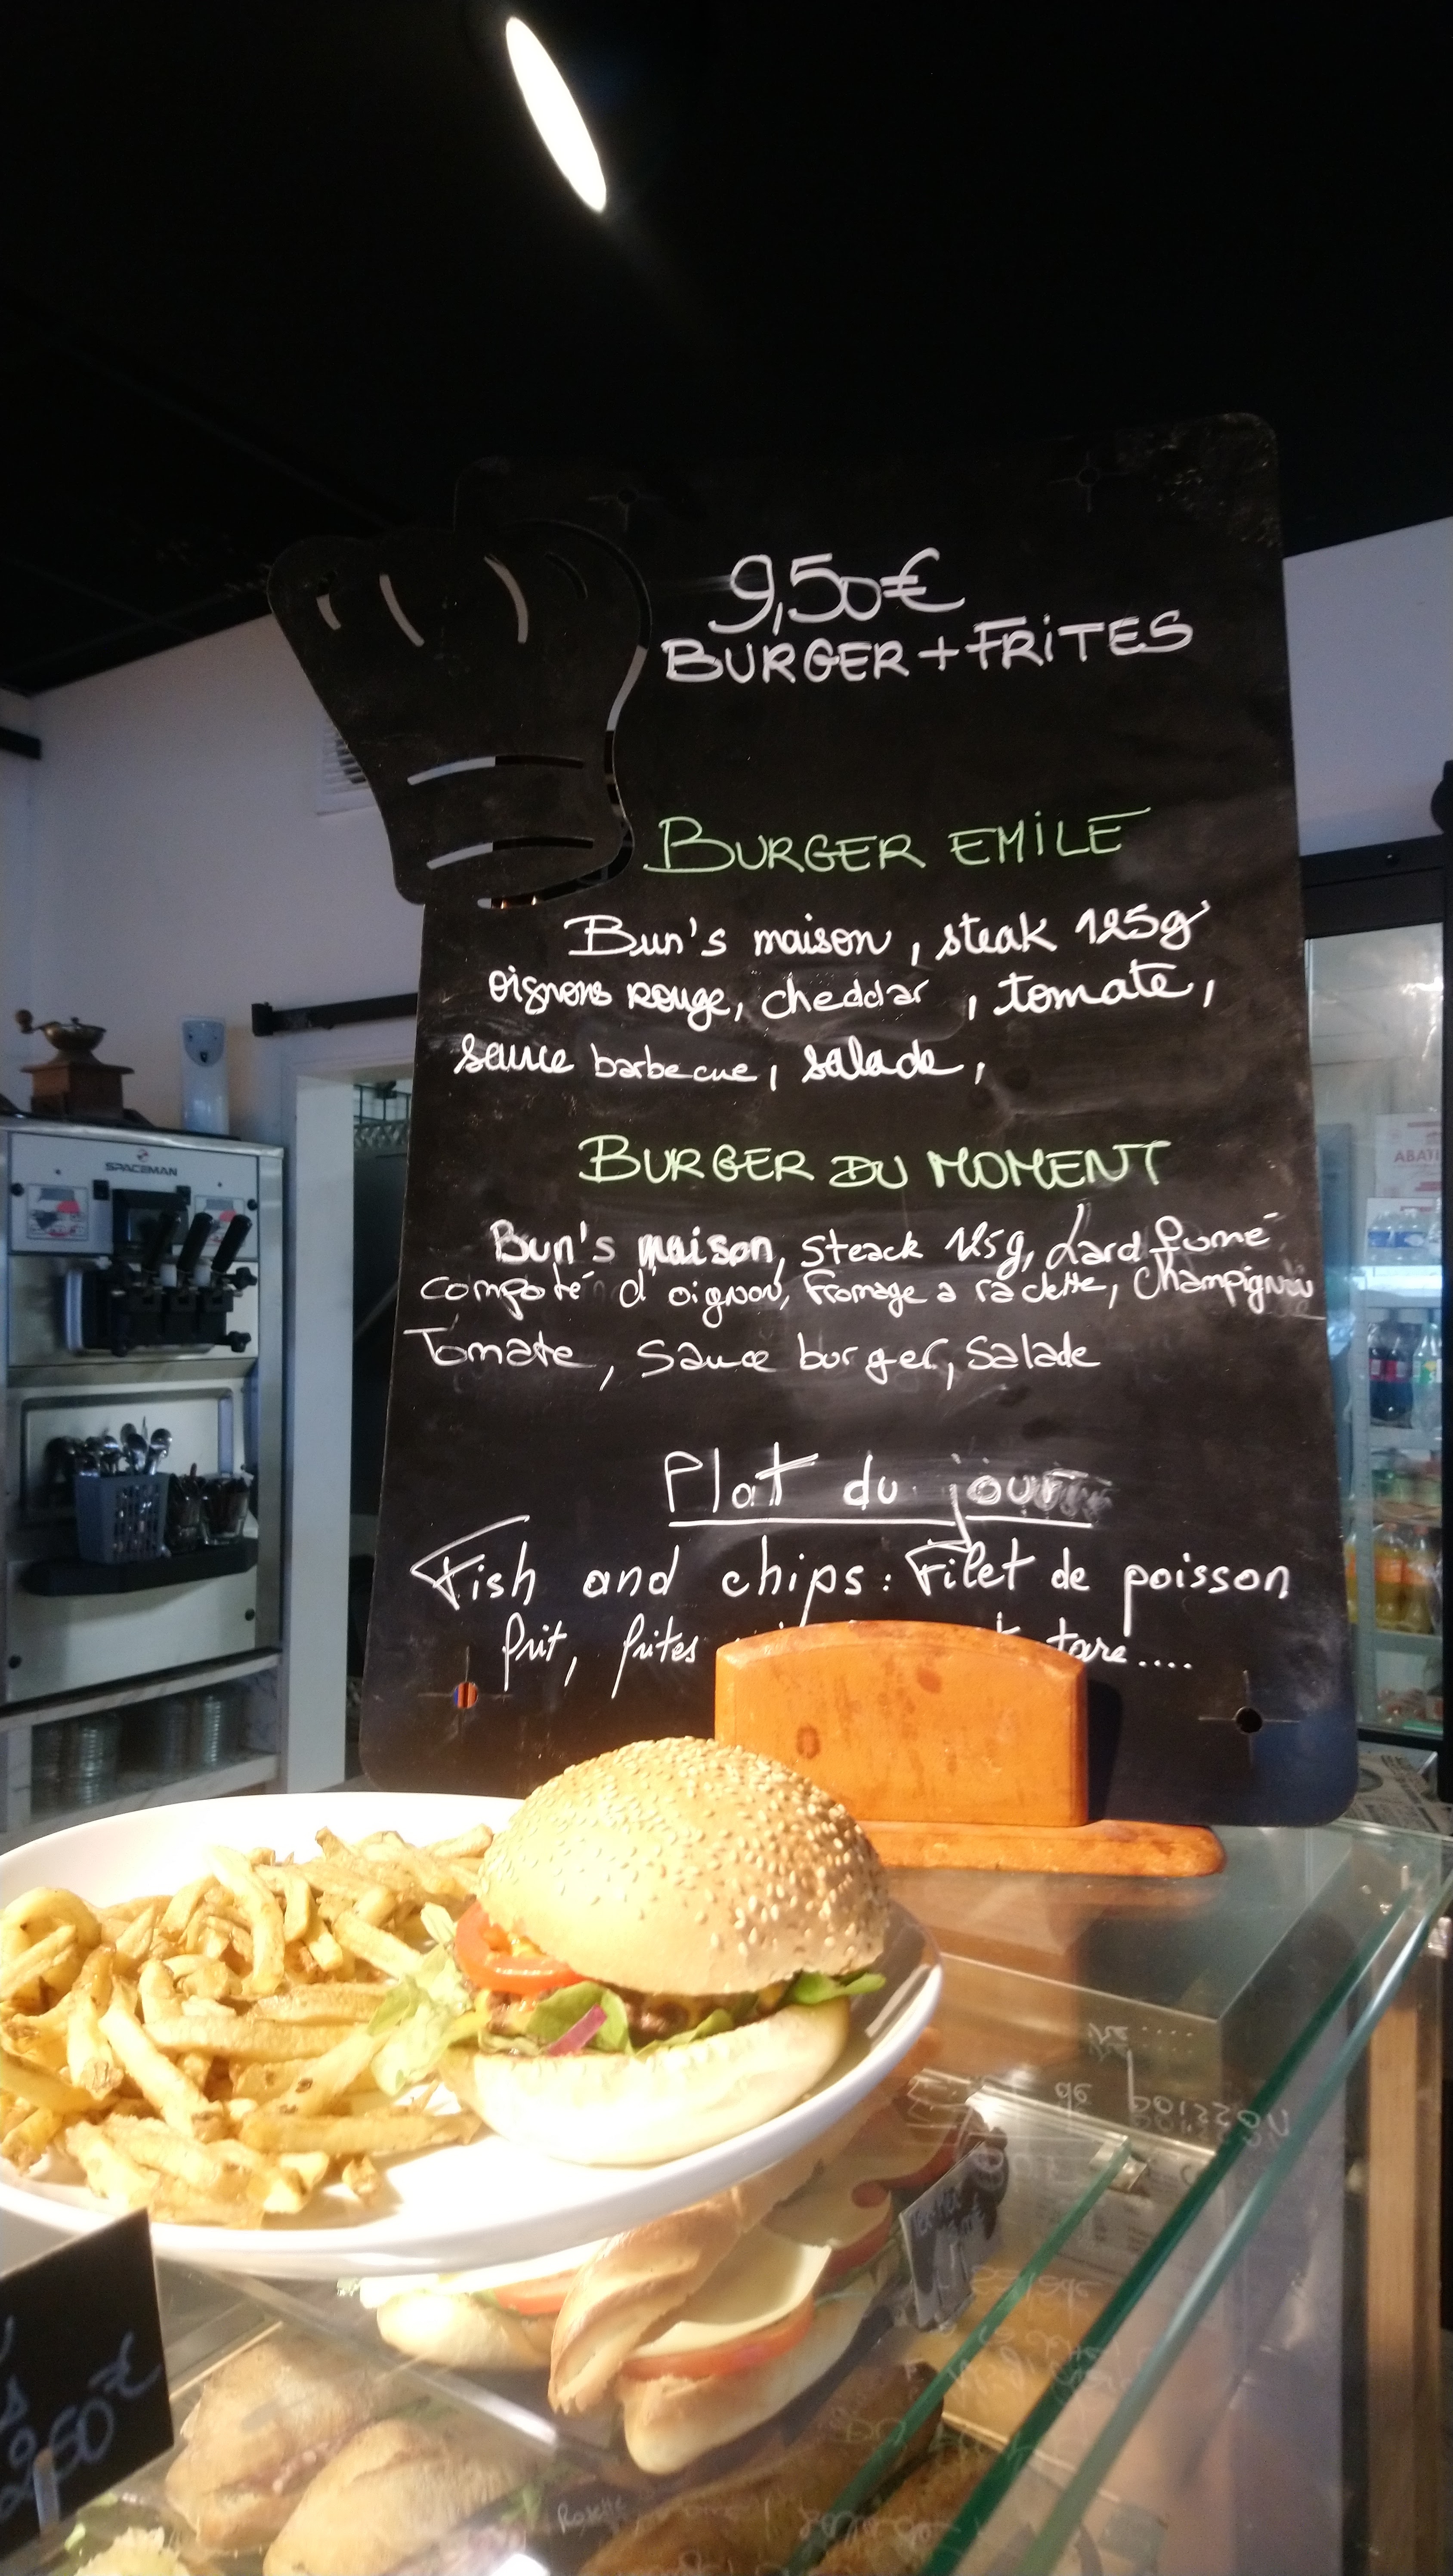 9,50€
BURGER + FRITES
BURGER EMILE
Bun's maison, steak 125g
oignons rouge, cheddar, tomate,
sauce barbecue, salade,
BURGER DU MOMENT
Bun's maison, Steack 125g, Lard fumé
compoté d'oignon, Fromage a raclette, Champignon
Tomate, Sauce burger, Salade
Plat du jour
Fish and chips: Filet de poisson
frit, frites tare....
SPACEMAN
ABATI